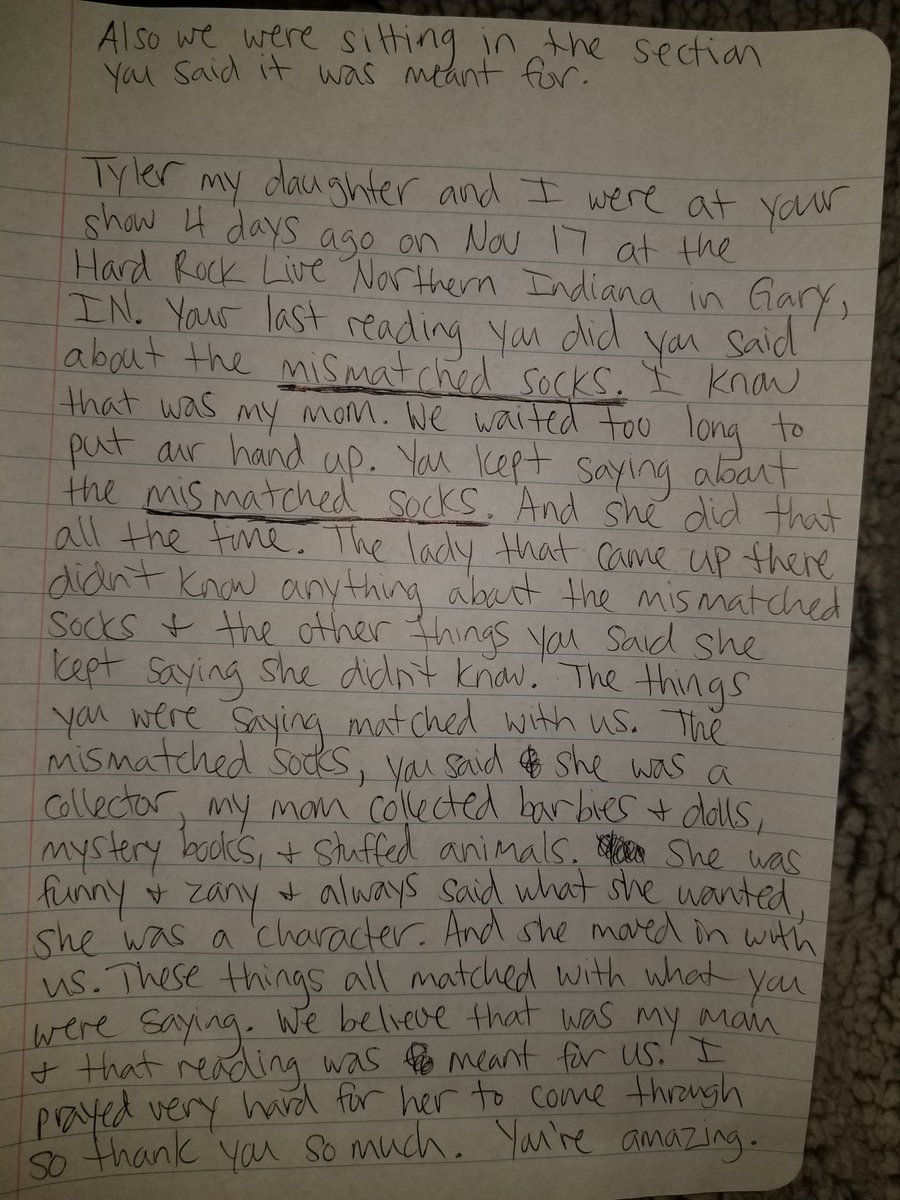 Also we were sitting in the section
you said it was meant for.
Tyler my daughter and I were at your
show 4 days ago on Nov 17 at the
Hard Rock Live Northern Indiana in Gary,
IN. Your last reading you did you said
about the mismatched socks. I know
that was my mom. We waited too long to
put our hand up. You kept saying about
the mismatched socks. And she did that
all the time. The lady that came up there
didn't know anything about the mismatched
socks + the other things you said she
kept saying she didn't know. The things
you were saying matched with us. The
mismatched socks, you said she was a
collector, my mom collected barbies + dolls,
mystery books, + stuffed animals. She was
funny + zany + always said what she wanted,
she was a character. And she moved in with
us. These things all matched with what you
were saying. We believe that was my mom
+ that reading was meant for us. I
prayed very hard for her to come through
so thank you so much. You're amazing.